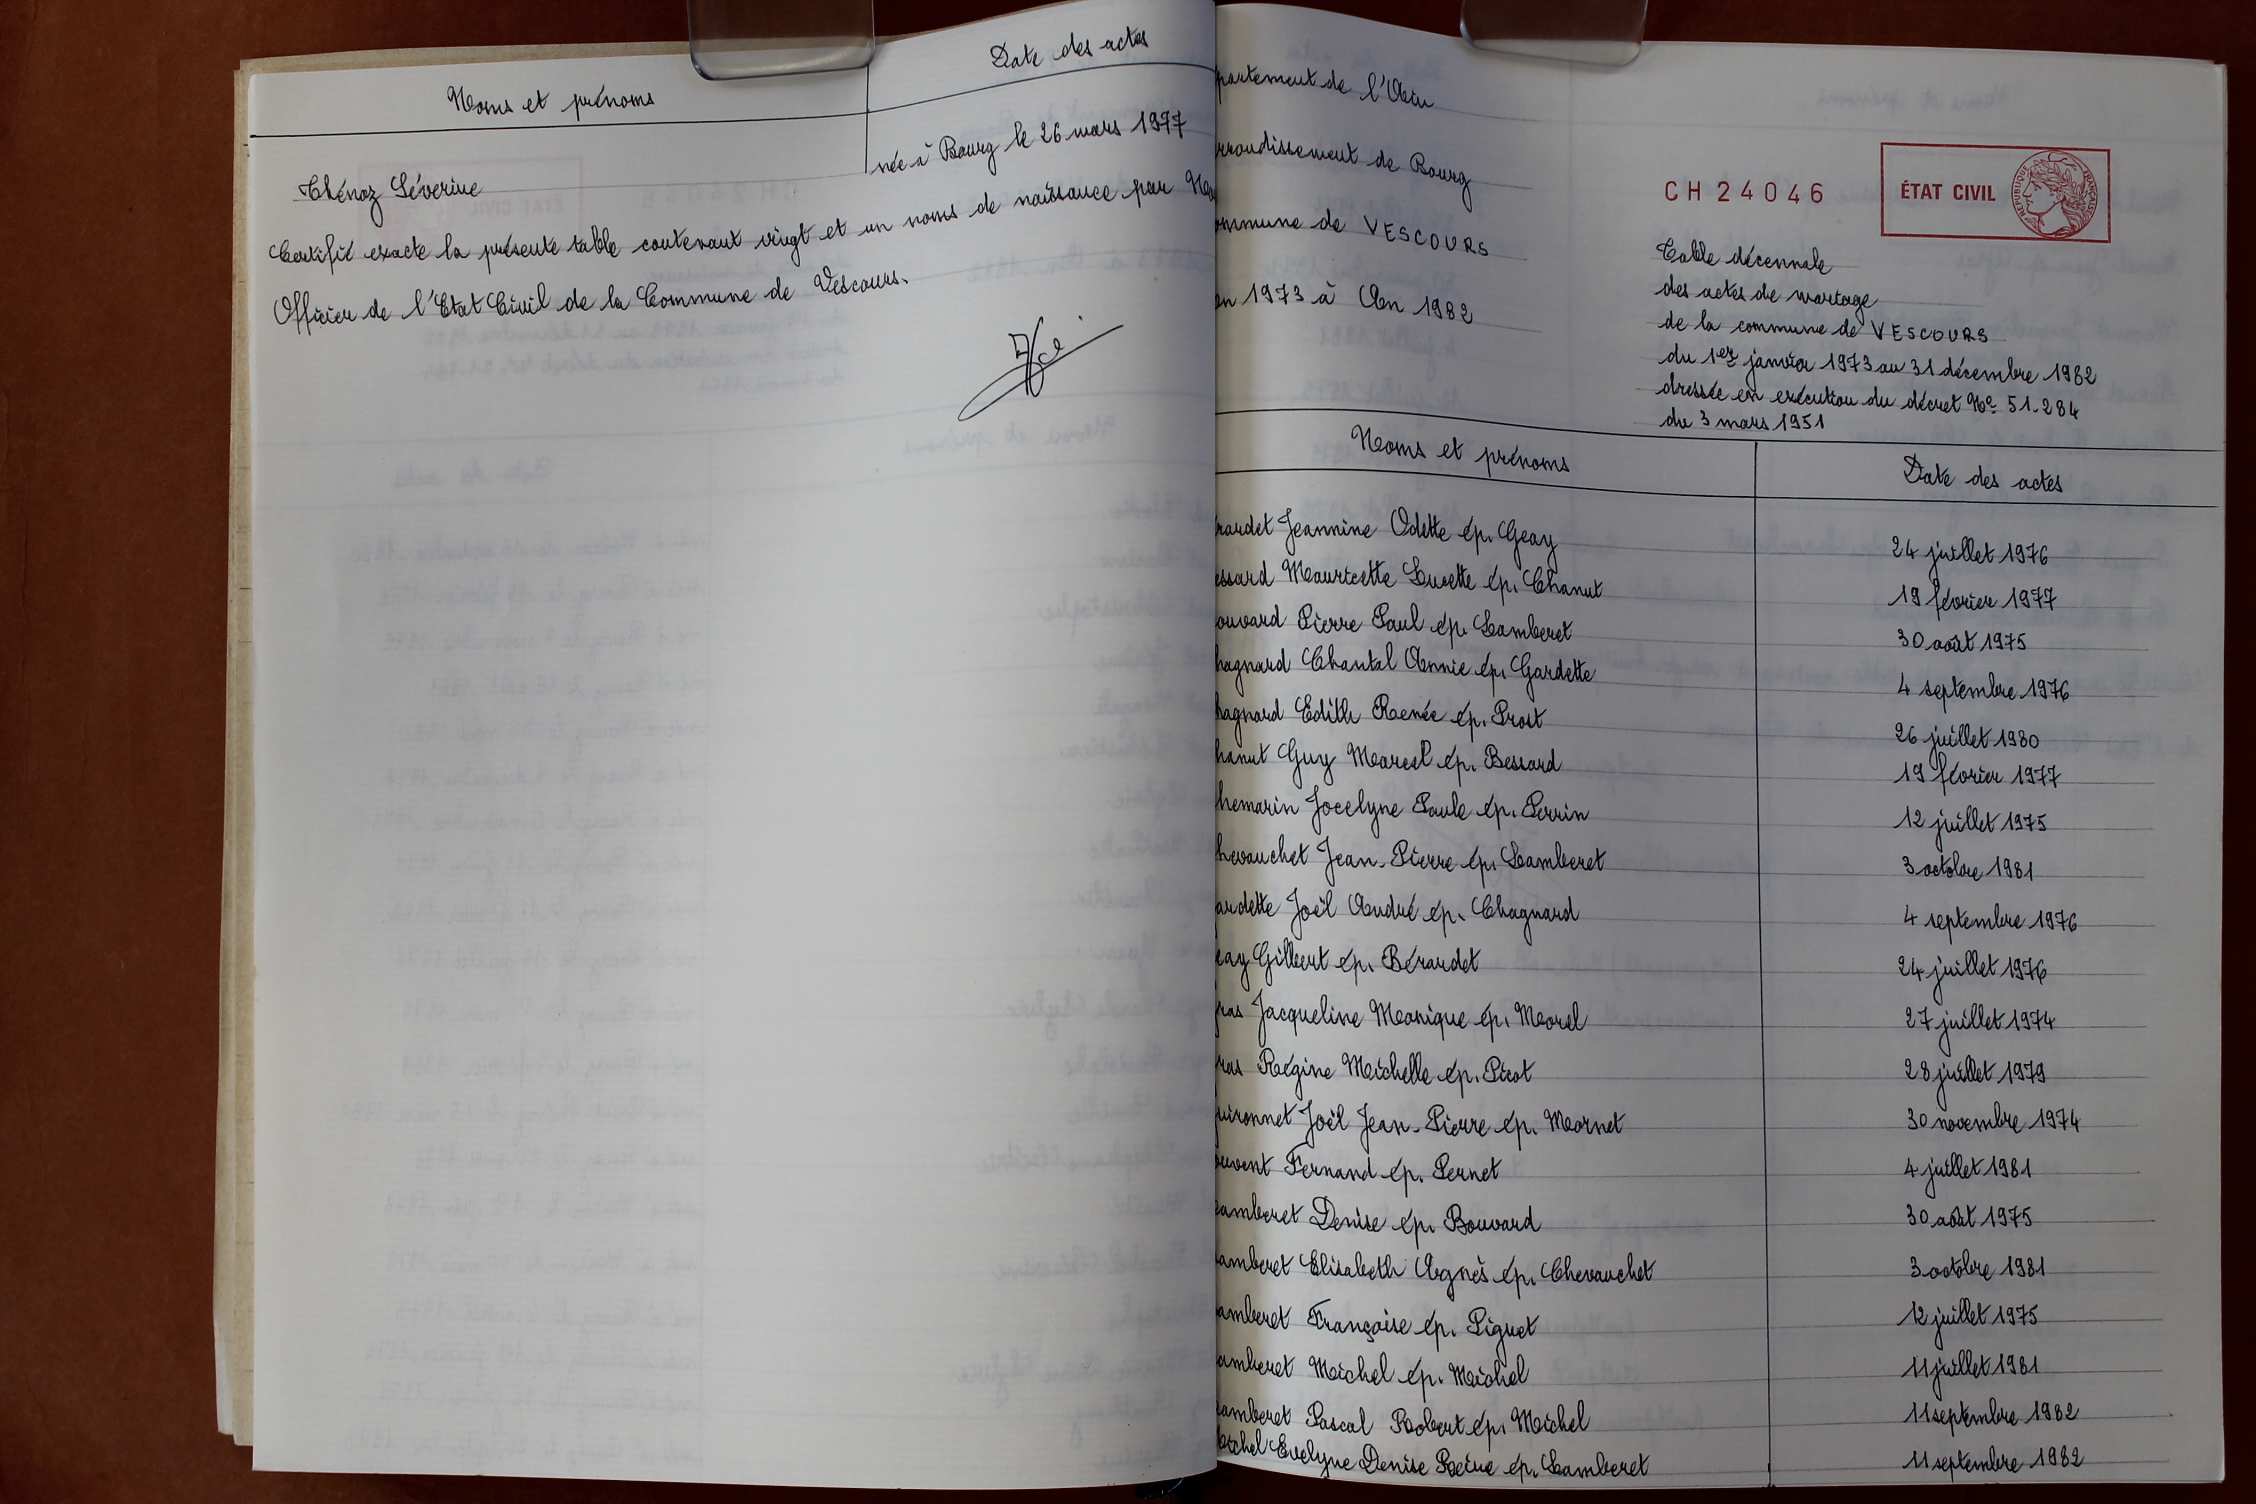 Noms et prénoms
Date des actes
Thénoz Séverine
née à Bourg le 26 mars 1977
Certifié exacte la présente table contenant vingt et un noms de naissance par
Officier de l'Etat Civil de la Commune de Vescours.
partement de l'Ain
rrondissement de Bourg
ommune de VESCOURS
an 1973 à An 1982
CH24046
ÉTAT CIVIL
RÉPUBLIQUE FRANÇAISE
Table décennale
des actes de mariage
de la commune de VESCOURS
du 1er janvier 1973 au 31 décembre 1982
dressée en exécution du décret No 51.284
du 3 mars 1951
Noms et prénoms
Date des actes
rardet Jeannine Odette ép. Geay
24 juillet 1976
essard Mauricette Lucette ép. Chanut
19 février 1977
ouvard Pierre Paul ép. Lamberet
30 août 1975
hagnard Chantal Annie ép. Gardette
4 septembre 1976
hagnard Edith Renée ép. Prost
26 juillet 1980
hanut Guy Marcel ép. Bessard
19 février 1977
hemarin Jocelyne Paule ép. Perrin
12 juillet 1975
hevauchet Jean-Pierre ép. Lamberet
3 octobre 1981
ardette Joël André ép. Chagnard
4 septembre 1976
eay Gilbert ép. Bérardet
24 juillet 1976
ras Jacqueline Monique ép. Morel
27 juillet 1974
ras Régine Michelle ép. Picot
28 juillet 1979
uironnet Joël Jean-Pierre ép. Mornet
30 novembre 1974
ouvent Fernand ép. Pernet
4 juillet 1981
amberet Denise ép. Bouvard
30 août 1975
amberet Elisabeth Agnès ép. Chevauchet
3 octobre 1981
amberet Françoise ép. Piguet
12 juillet 1975
amberet Michel ép. Michel
11 juillet 1981
amberet Pascal Robert ép. Michel
11 septembre 1982
ichel Evelyne Denise Reine ép. Lamberet
11 septembre 1982